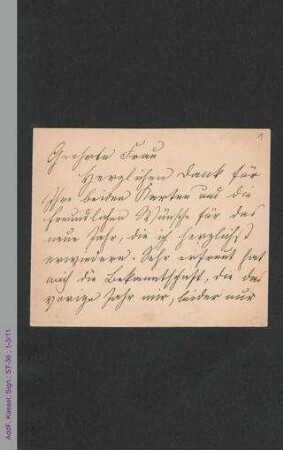 1
Geehrte Frau
Herzlichen Dank für
Ihre beiden Karten und die
freundlichen Wünsche für das
neue Jahr, die ich herzlichst
erwiedere. Sehr erfreut hat
mich die Bekanntschaft, die das
vorige Jahr mir, leider nur
AddF, Kassel, Sign.: ST-36 ; 1-3/11